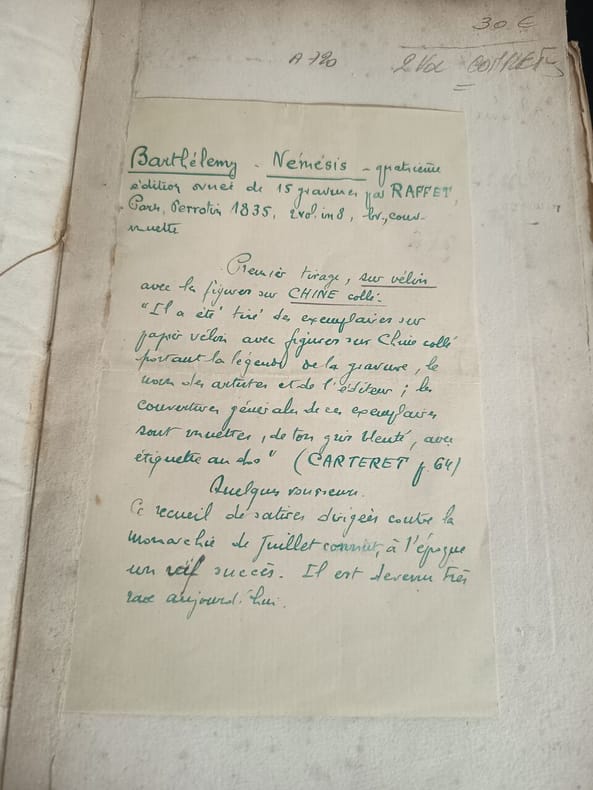 30 €
A 720
2 Vol COMPLETS
Barthélemy - Némésis - quatrième
édition ornée de 15 gravures par RAFFET,
Paris, Perrotin 1835, 2 vol. in 8, br., couv.
muette
Premier tirage, sur vélin
avec les figures sur CHINE collé.
"Il a été tiré des exemplaires sur
papier vélin avec figures sur Chine collé
portant la légende de la gravure, le
nom des artistes et de l'éditeur ; les
couvertures générales de ces exemplaires
sont muettes, de ton gris bleuté, avec
étiquette au dos" (CARTERET p. 64)
Quelques rousseurs.
Ce recueil de satires dirigées contre la
monarchie de Juillet connut, à l'époque
un vif succès. Il est devenu très
rare aujourd'hui.